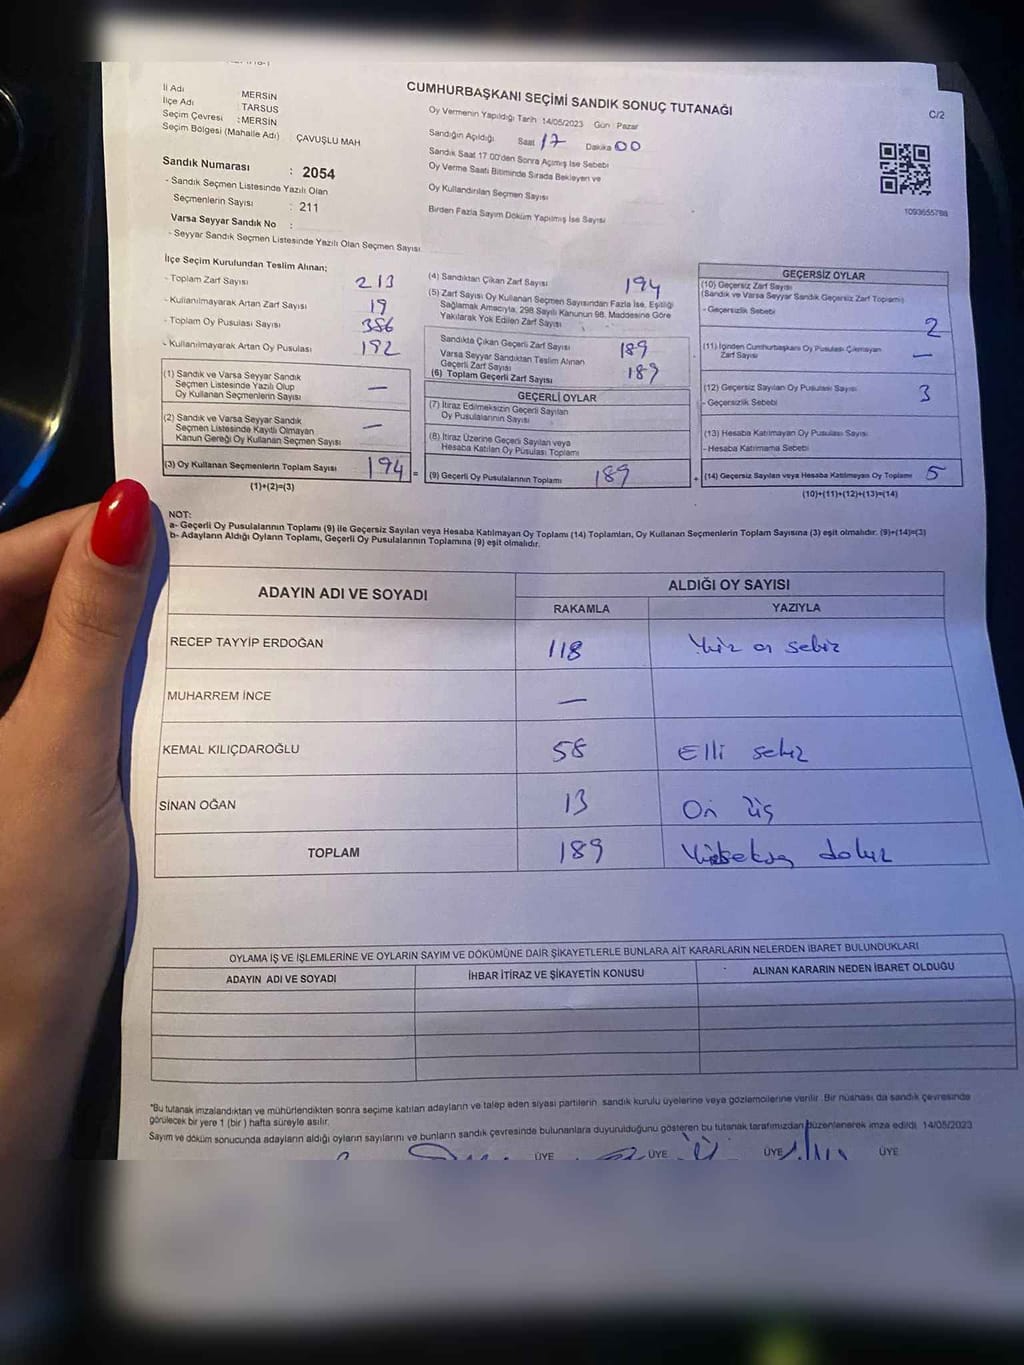 İl Adı MERSİN
İlçe Adı : TARSUS
Seçim Çevresi : MERSİN
Seçim Bölgesi (Mahalle Adı) : ÇAVUŞLU MAH
Sandık Numarası : 2054
- Sandık Seçmen Listesinde Yazılı Olan
Seçmenlerin Sayısı : 211
Varsa Seyyar Sandık No :
- Seyyar Sandık Seçmen Listesinde Yazılı Olan Seçmen Sayısı
CUMHURBAŞKANI SEÇİMİ SANDIK SONUÇ TUTANAĞI
C/2
Oy Vermenin Yapıldığı Tarih 14/05/2023 Gün : Pazar
Sandığın Açıldığı Saat 17 Dakika 00
Sandık Saat 17 00'den Sonra Açımış İse Sebebi
Oy Verme Saati Bitiminde Sırada Bekleyen ve
Oy Kullandırılan Seçmen Sayısı
Birden Fazla Sayım Döküm Yapılmış İse Sayısı
1093655788
İlçe Seçim Kurulundan Teslim Alınan;
- Toplam Zarf Sayısı 213
- Kullanılmayarak Artan Zarf Sayısı 19
- Toplam Oy Pusulası Sayısı 386
- Kullanılmayarak Artan Oy Pusulası 192
(1) Sandık ve Varsa Seyyar Sandık
Seçmen Listesinde Yazılı Olup
Oy Kullanan Seçmenlerin Sayısı —
(2) Sandık ve Varsa Seyyar Sandık
Seçmen Listesinde Kayıtlı Olmayan
Kanun Gereği Oy Kullanan Seçmen Sayısı —
(3) Oy Kullanan Seçmenlerin Toplam Sayısı 194 =
(1)+(2)=(3)
(4) Sandıktan Çıkan Zarf Sayısı 194
(5) Zarf Sayısı Oy Kullanan Seçmen Sayısından Fazla İse, Eşitliği
Sağlamak Amacıyla, 298 Sayılı Kanunun 98. Maddesine Göre
Yakılarak Yok Edilen Zarf Sayısı
Sandıkta Çıkan Geçerli Zarf Sayısı 189
Varsa Seyyar Sandıktan Teslim Alınan
Geçerli Zarf Sayısı
(6) Toplam Geçerli Zarf Sayısı 189
GEÇERLİ OYLAR
(7) İtiraz Edilmeksizin Geçerli Sayılan
Oy Pusulalarının Sayısı
(8) İtiraz Üzerine Geçerli Sayılan veya
Hesaba Katılan Oy Pusulası Toplamı
(9) Geçerli Oy Pusulalarının Toplamı 189 +
GEÇERSİZ OYLAR
(10) Geçersiz Zarf Sayısı
(Sandık ve Varsa Seyyar Sandık Geçersiz Zarf Toplamı)
- Geçersizlik Sebebi 2
(11) İçinden Cumhurbaşkanı Oy Pusulası Çıkmayan
Zarf Sayısı —
(12) Geçersiz Sayılan Oy Pusulası Sayısı 3
- Geçersizlik Sebebi
(13) Hesaba Katılmayan Oy Pusulası Sayısı
- Hesaba Katılmama Sebebi
(14) Geçersiz Sayılan veya Hesaba Katılmayan Oy Toplamı 5
(10)+(11)+(12)+(13)=(14)
NOT:
a- Geçerli Oy Pusulalarının Toplamı (9) ile Geçersiz Sayılan veya Hesaba Katılmayan Oy Toplamı (14) Toplamları, Oy Kullanan Seçmenlerin Toplam Sayısına (3) eşit olmalıdır. (9)+(14)=(3)
b- Adayların Aldığı Oyların Toplamı, Geçerli Oy Pusulalarının Toplamına (9) eşit olmalıdır.
ADAYIN ADI VE SOYADI ALDIĞI OY SAYISI
RAKAMLA YAZIYLA
RECEP TAYYİP ERDOĞAN 118 Yüz on sekiz
MUHARREM İNCE —
KEMAL KILIÇDAROĞLU 58 Elli sekiz
SİNAN OĞAN 13 On üç
TOPLAM 189 Yüzseksen dokuz
OYLAMA İŞ VE İŞLEMLERİNE VE OYLARIN SAYIM VE DÖKÜMÜNE DAİR ŞİKAYETLERLE BUNLARA AİT KARARLARIN NELERDEN İBARET BULUNDUKLARI
ADAYIN ADI VE SOYADI İHBAR İTİRAZ VE ŞİKAYETİN KONUSU ALINAN KARARIN NEDEN İBARET OLDUĞU
*Bu tutanak imzalandıktan ve mühürlendikten sonra seçime katılan adayların ve talep eden siyasi partilerin sandık kurulu üyelerine veya gözlemcilerine verilir. Bir nüshası da sandık çevresinde
görülecek bir yere 1 (bir ) hafta süreyle asılır.
Sayım ve döküm sonucunda adayların aldığı oyların sayılarını ve bunların sandık çevresinde bulunanlara duyurulduğunu gösteren bu tutanak tarafımızdan düzenlenerek imza edildi. 14/05/2023
ÜYE ÜYE ÜYE ÜYE